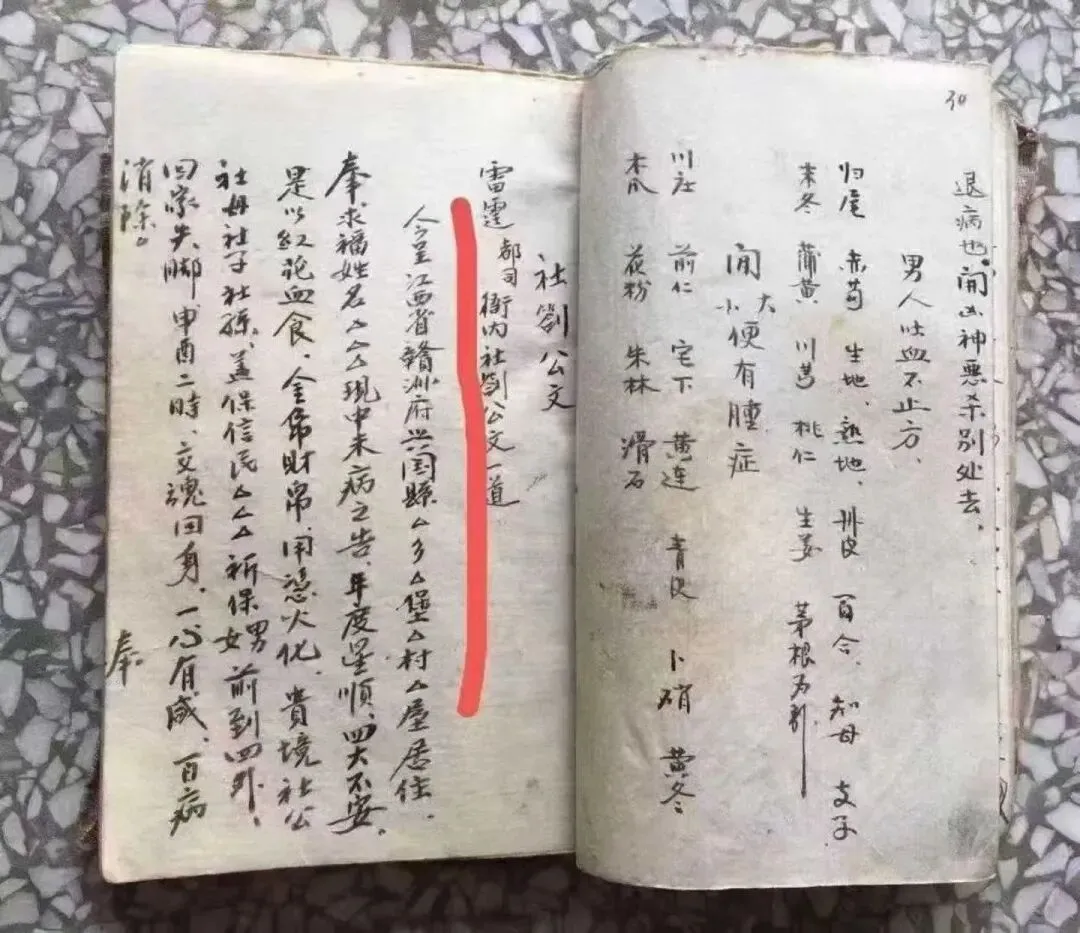 30
退病也，闹凶神恶杀别处去，
男人吐血不止方、
归尾 赤芍 生地、熟地、丹皮 百合、知母 支子
麦冬 蒲黄 川芎 桃仁 生姜 茅根为引
闭大小便有腫症
前仁 宅下 黄连 青皮 卜硝 黄冬
木爪 花粉 朱林 滑石
社劄公文
雷霆都司衙内社劄公文一道
今呈江西省赣州府兴国縣△乡△堡△村△屋居住、
奉求福姓名△△△现中未病之告、年度逞順、四大不安、
是以紅花血食、金帛財帛、用憑火化、貴境社公
社母社子社孫、盖保信民△△△祈保男女前到四外、
回家失脚申酉二時、交魂回身、一心有感、百病
消除。
奉